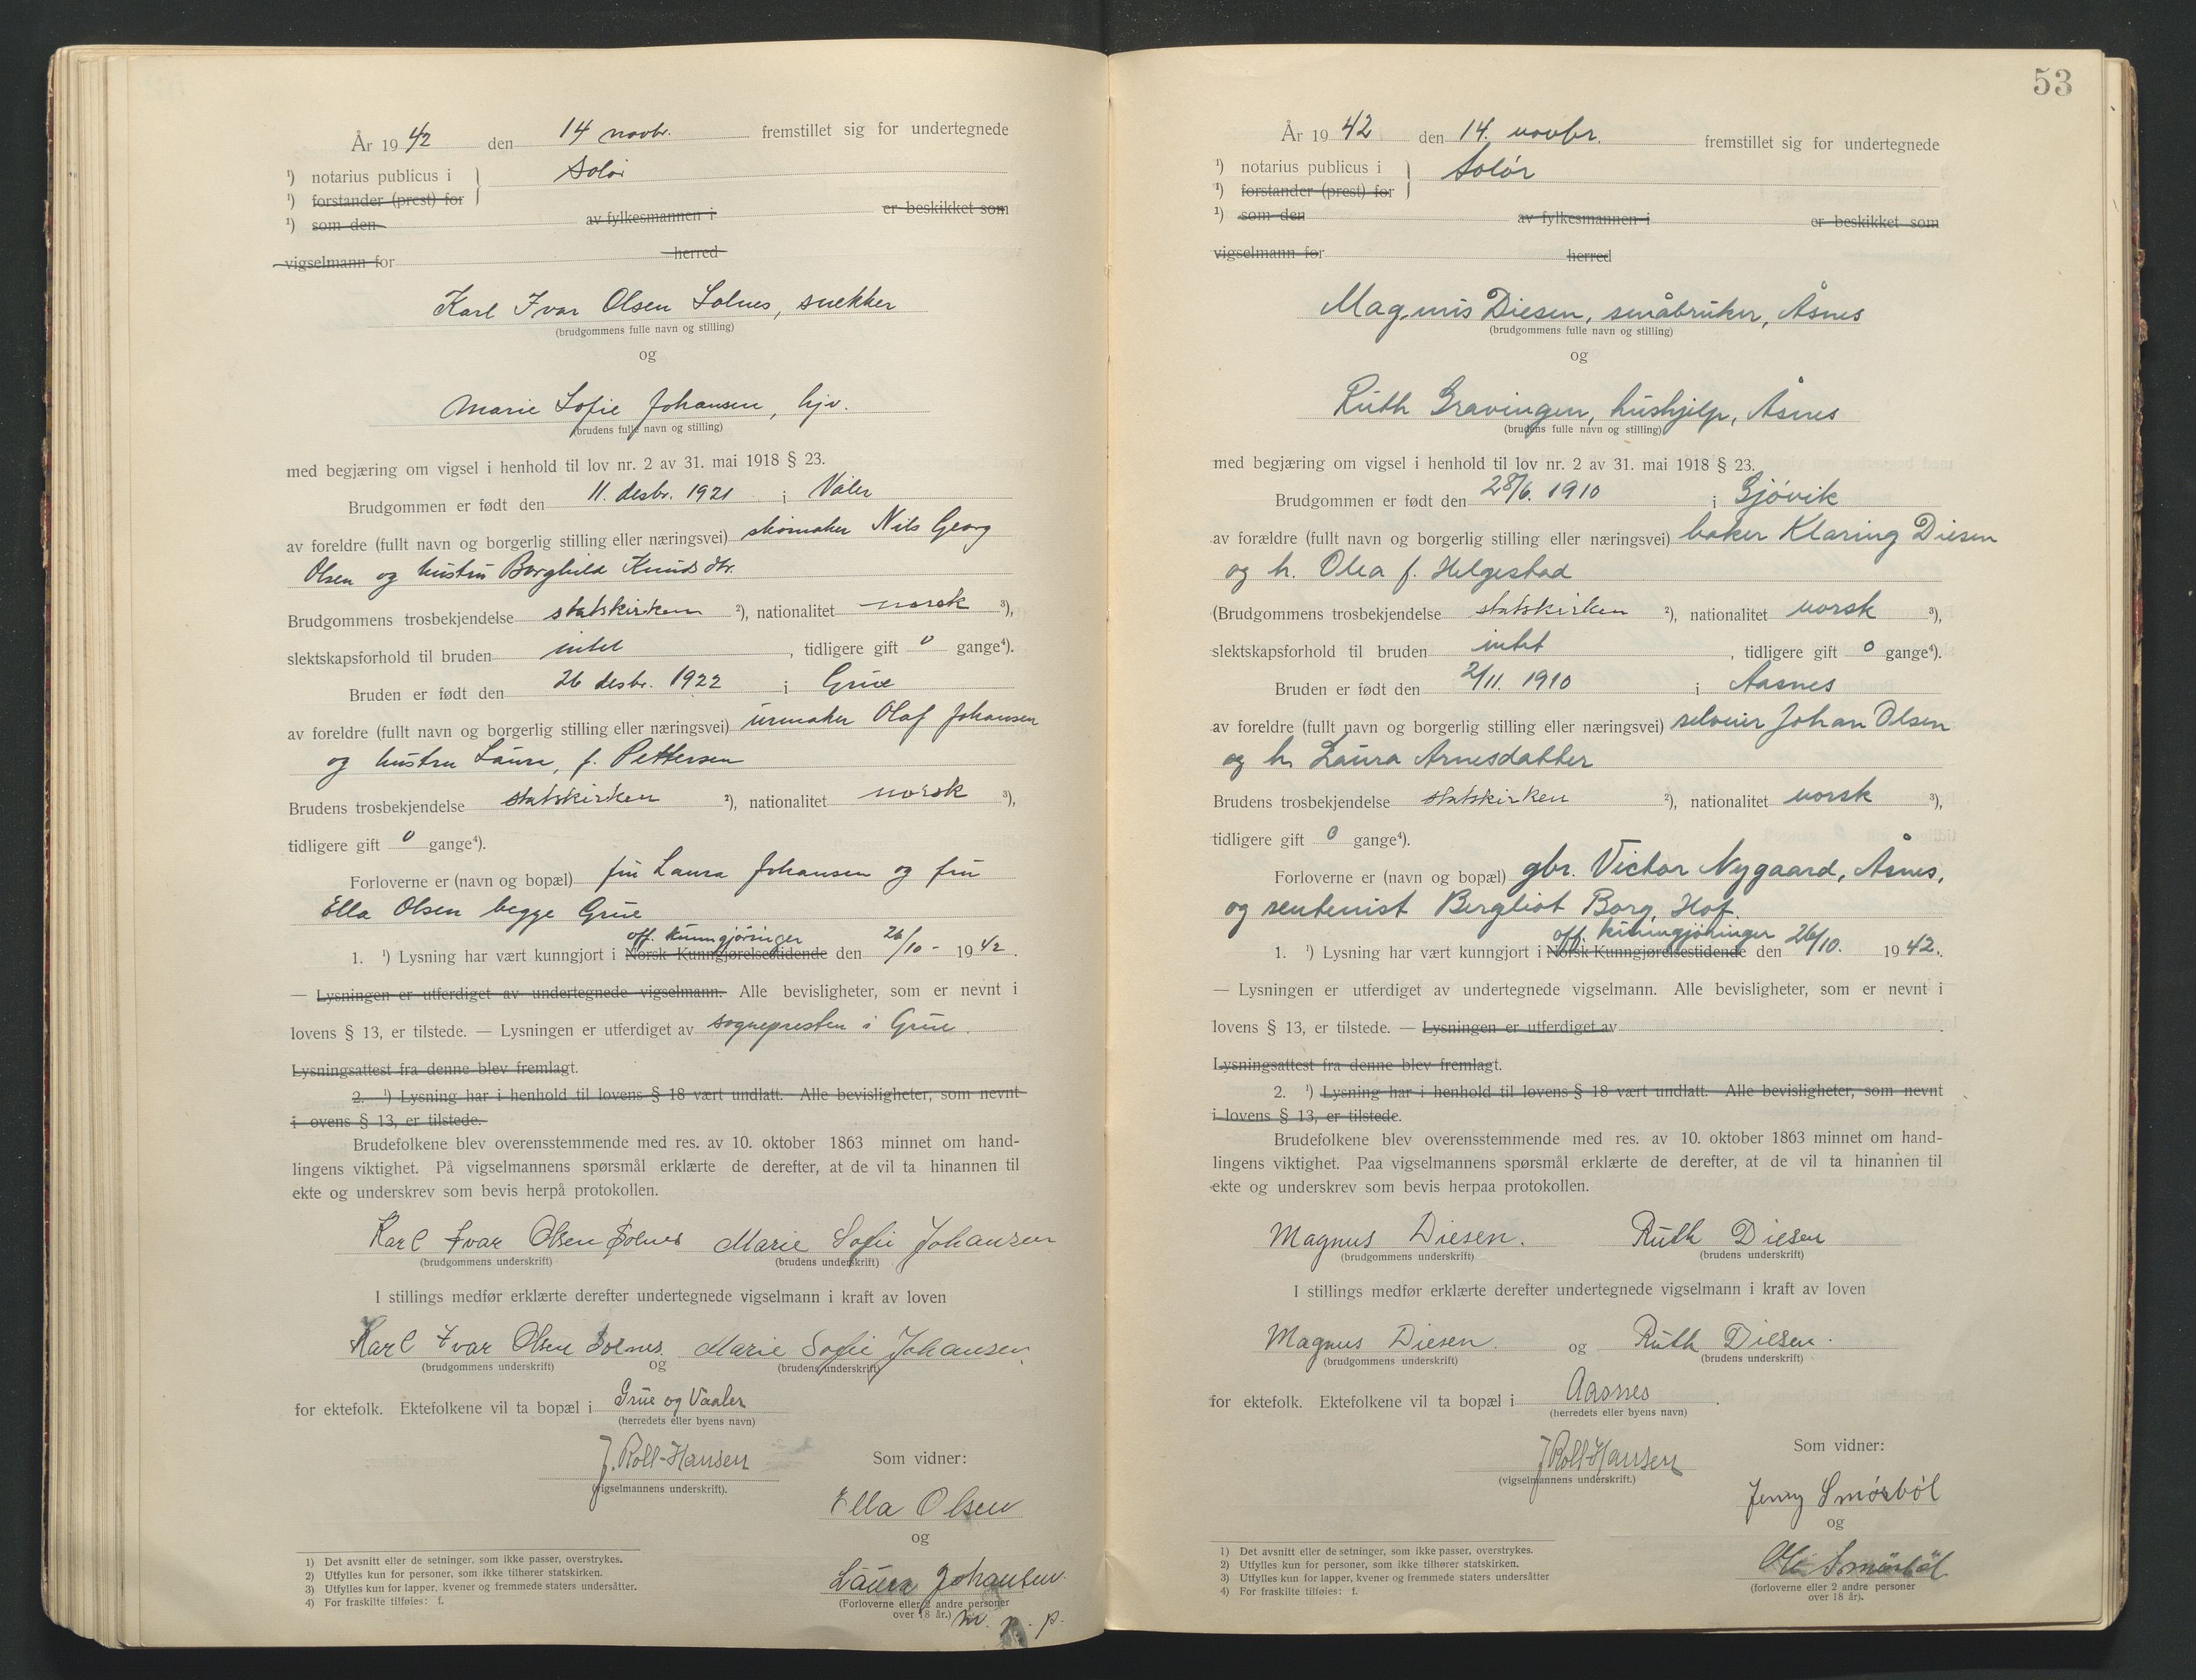 År 19 42 den 14 novbr. fremstillet sig for undertegnede
¹) notarius publicus i Solør
¹) forstander (prest) for
¹) som den av fylkesmannen i er beskikket som
vigselmann for herred
Karl Ivar Olsen Solnes, snekker
(brudgommens fulle navn og stilling)
og
Marie Sofie Johansen, hjv.
(brudens fulle navn og stilling)
med begjæring om vigsel i henhold til lov nr. 2 av 31. mai 1918 § 23.
Brudgommen er født den 11. desbr. 1921 i Våler
av foreldre (fullt navn og borgerlig stilling eller næringsvei) skomaker Nils Georg
Olsen og hustru Borghild Knudsdtr.
Brudgommens trosbekjendelse statskirken ²), nationalitet norsk ³),
slektskapsforhold til bruden intet , tidligere gift 0 gange⁴).
Bruden er født den 26 desbr. 1922 i Grue
av foreldre (fullt navn og borgerlig stilling eller næringsvei) urmaker Olaf Johansen
og hustru Laura, f. Pettersen
Brudens trosbekjendelse statskirken ²), nationalitet norsk ³),
tidligere gift 0 gange⁴).
Forloverne er (navn og bopæl) fru Laura Johansen og fru
Ella Olsen begge Grue
off. kunngjøringer
1. ¹) Lysning har vært kunngjort i Norsk Kunngjørelsestidende den 26/10 - 19 42.
— Lysningen er utferdiget av undertegnede vigselmann. Alle bevisligheter, som er nevnt i
lovens § 13, er tilstede. — Lysningen er utferdiget av sognepresten i Grue.
Lysningsattest fra denne blev fremlagt.
2. ¹) Lysning har i henhold til lovens § 18 vært undlatt. Alle bevisligheter, som nevnt
i ovens § 13, er tilstede.
Brudefolkene blev overensstemmende med res. av 10. oktober 1863 minnet om hand-
lingens viktighet. På vigselmannens spørsmål erklærte de derefter, at de vil ta hinannen til
ekte og underskrev som bevis herpå protokollen.
Karl Ivar Olsen Solnes Marie Sofie Johansen
(brudgommens underskrift) (brudens underskrift)
I stillings medfør erklærte derefter undertegnede vigselmann i kraft av loven
Karl Ivar Olsen Solnes og Marie Sofie Johansen
(brudgommens underskrift) (brudens underskrift)
for ektefolk. Ektefolkene vil ta bopæl i Grue og Vaaler
(herredets eller byens navn)
J. Roll-Hansen Som vidner:
(vigselmannens underskrift).
Ella Olsen
og
Laura Johansen.
(Forloverne eller 2 andre personer
over 18 år.) m. p. p.
1) Det avsnitt eller de setninger, som ikke passer, overstrykes.
2) Utfylles kun for personer, som ikke tilhører statskirken.
3) Utfylles kun for lapper, kvener og fremmede staters undersåtter.
4) For fraskilte tilføies: f.
53
År 19 42 den 14. novbr. fremstillet sig for undertegnede
¹) notarius publicus i Solør
¹) forstander (prest) for
¹) som den av fylkesmannen i er beskikket som
vigselmann for herred
Magnus Diesen, småbruker, Åsnes
(brudgommens fulle navn og stilling)
og
Ruth Gravingen, hushjelp, Åsnes
(brudens fulle navn og stilling)
med begjæring om vigsel i henhold til lov nr. 2 av 31. mai 1918 § 23.
Brudgommen er født den 28/6. 1910 i Gjøvik
av forældre (fullt navn og borgerlig stilling eller næringsvei) baker Klaring Diesen
og h. Olea f. Helgestad
(Brudgommens trosbekjendelse statskirken ²), nationalitet norsk ³),
slektskapsforhold til bruden intet , tidligere gift 0 gange⁴).
Bruden er født den 2/11. 1910 i Aasnes
av foreldre (fullt navn og borgerlig stilling eller næringsvei) selveier Johan Olsen
og h. Laura Arnesdatter
Brudens trosbekjendelse statskirken ²), nationalitet norsk ³),
tidligere gift 0 gange⁴).
Forloverne er (navn og bopæl) gbr. Victor Nygaard, Åsnes,
og rentenist Bergliot Borg, Hof.
off. kunngjøringer
1. ¹) Lysning har vært kunngjort i Norsk Kunngjørelsestidende den 26/10. 19 42.
— Lysningen er utferdiget av undertegnede vigselmann. Alle bevisligheter, som er nevnt i
lovens § 13, er tilstede. — Lysningen er utferdiget av
Lysningsattest fra denne blev fremlagt.
2. ¹) Lysning har i henhold til lovens § 18 vært undlatt. Alle bevisligheter, som nevnt
i lovens § 13, er tilstede.
Brudefolkene blev overensstemmende med res. av 10. oktober 1863 minnet om hand-
lingens viktighet. Paa vigselmannens spørsmål erklærte de derefter, at de vil ta hinannen til
ekte og underskrev som bevis herpaa protokollen.
Magnus Diesen. Ruth Diesen
(brudgommens underskrift) (brudens underskrift)
I stillings medfør erklærte derefter undertegnede vigselmann i kraft av loven
Magnus Diesen. og Ruth Diesen.
(brudgommens underskrift) (brudens underskrift)
for ektefolk. Ektefolkene vil ta bopæl i Aasnes.
(herredets eller byens navn)
J Roll-Hansen Som vidner:
(vigselmannens underskrift.)
Jenny Smørbøl
og
Ole Smørbøl
(forloverne eller 2 andre personer
over 18 år).
1) Det avsnitt eller de setninger, som ikke passer, overstrykes.
2) Utfylles kun for personer, som ikke tilhører statskirken.
3) Utfylles kun for lapper, kvener og fremmede staters undersåtter
4) For fraskilte tilføies: f.